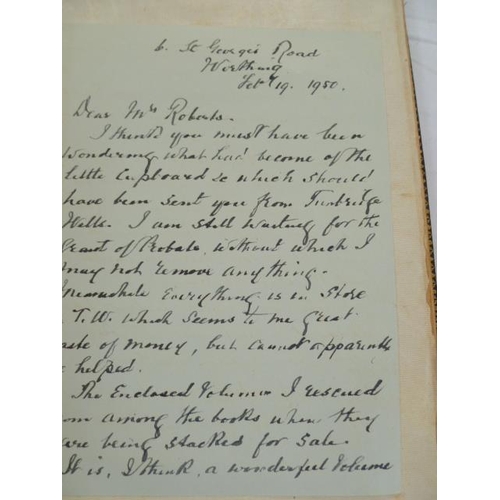 6. St George's Road
Worthing
Feby 19. 1950.
Dear Mrs Roberts.
I think you must have been
wondering what had become of the
little cupboard &c which should
have been sent you from Tunbridge
Wells. I am still waiting for the
Grant of Probate, without which I
may not remove anything.
Meanwhile Everything is in Store
T.W. which seems to me great
of money, but cannot apparently
helped.
The Enclosed Volume I rescued
from among the books when they
were being stacked for Sale.
It is, I think, a wonderful Volume